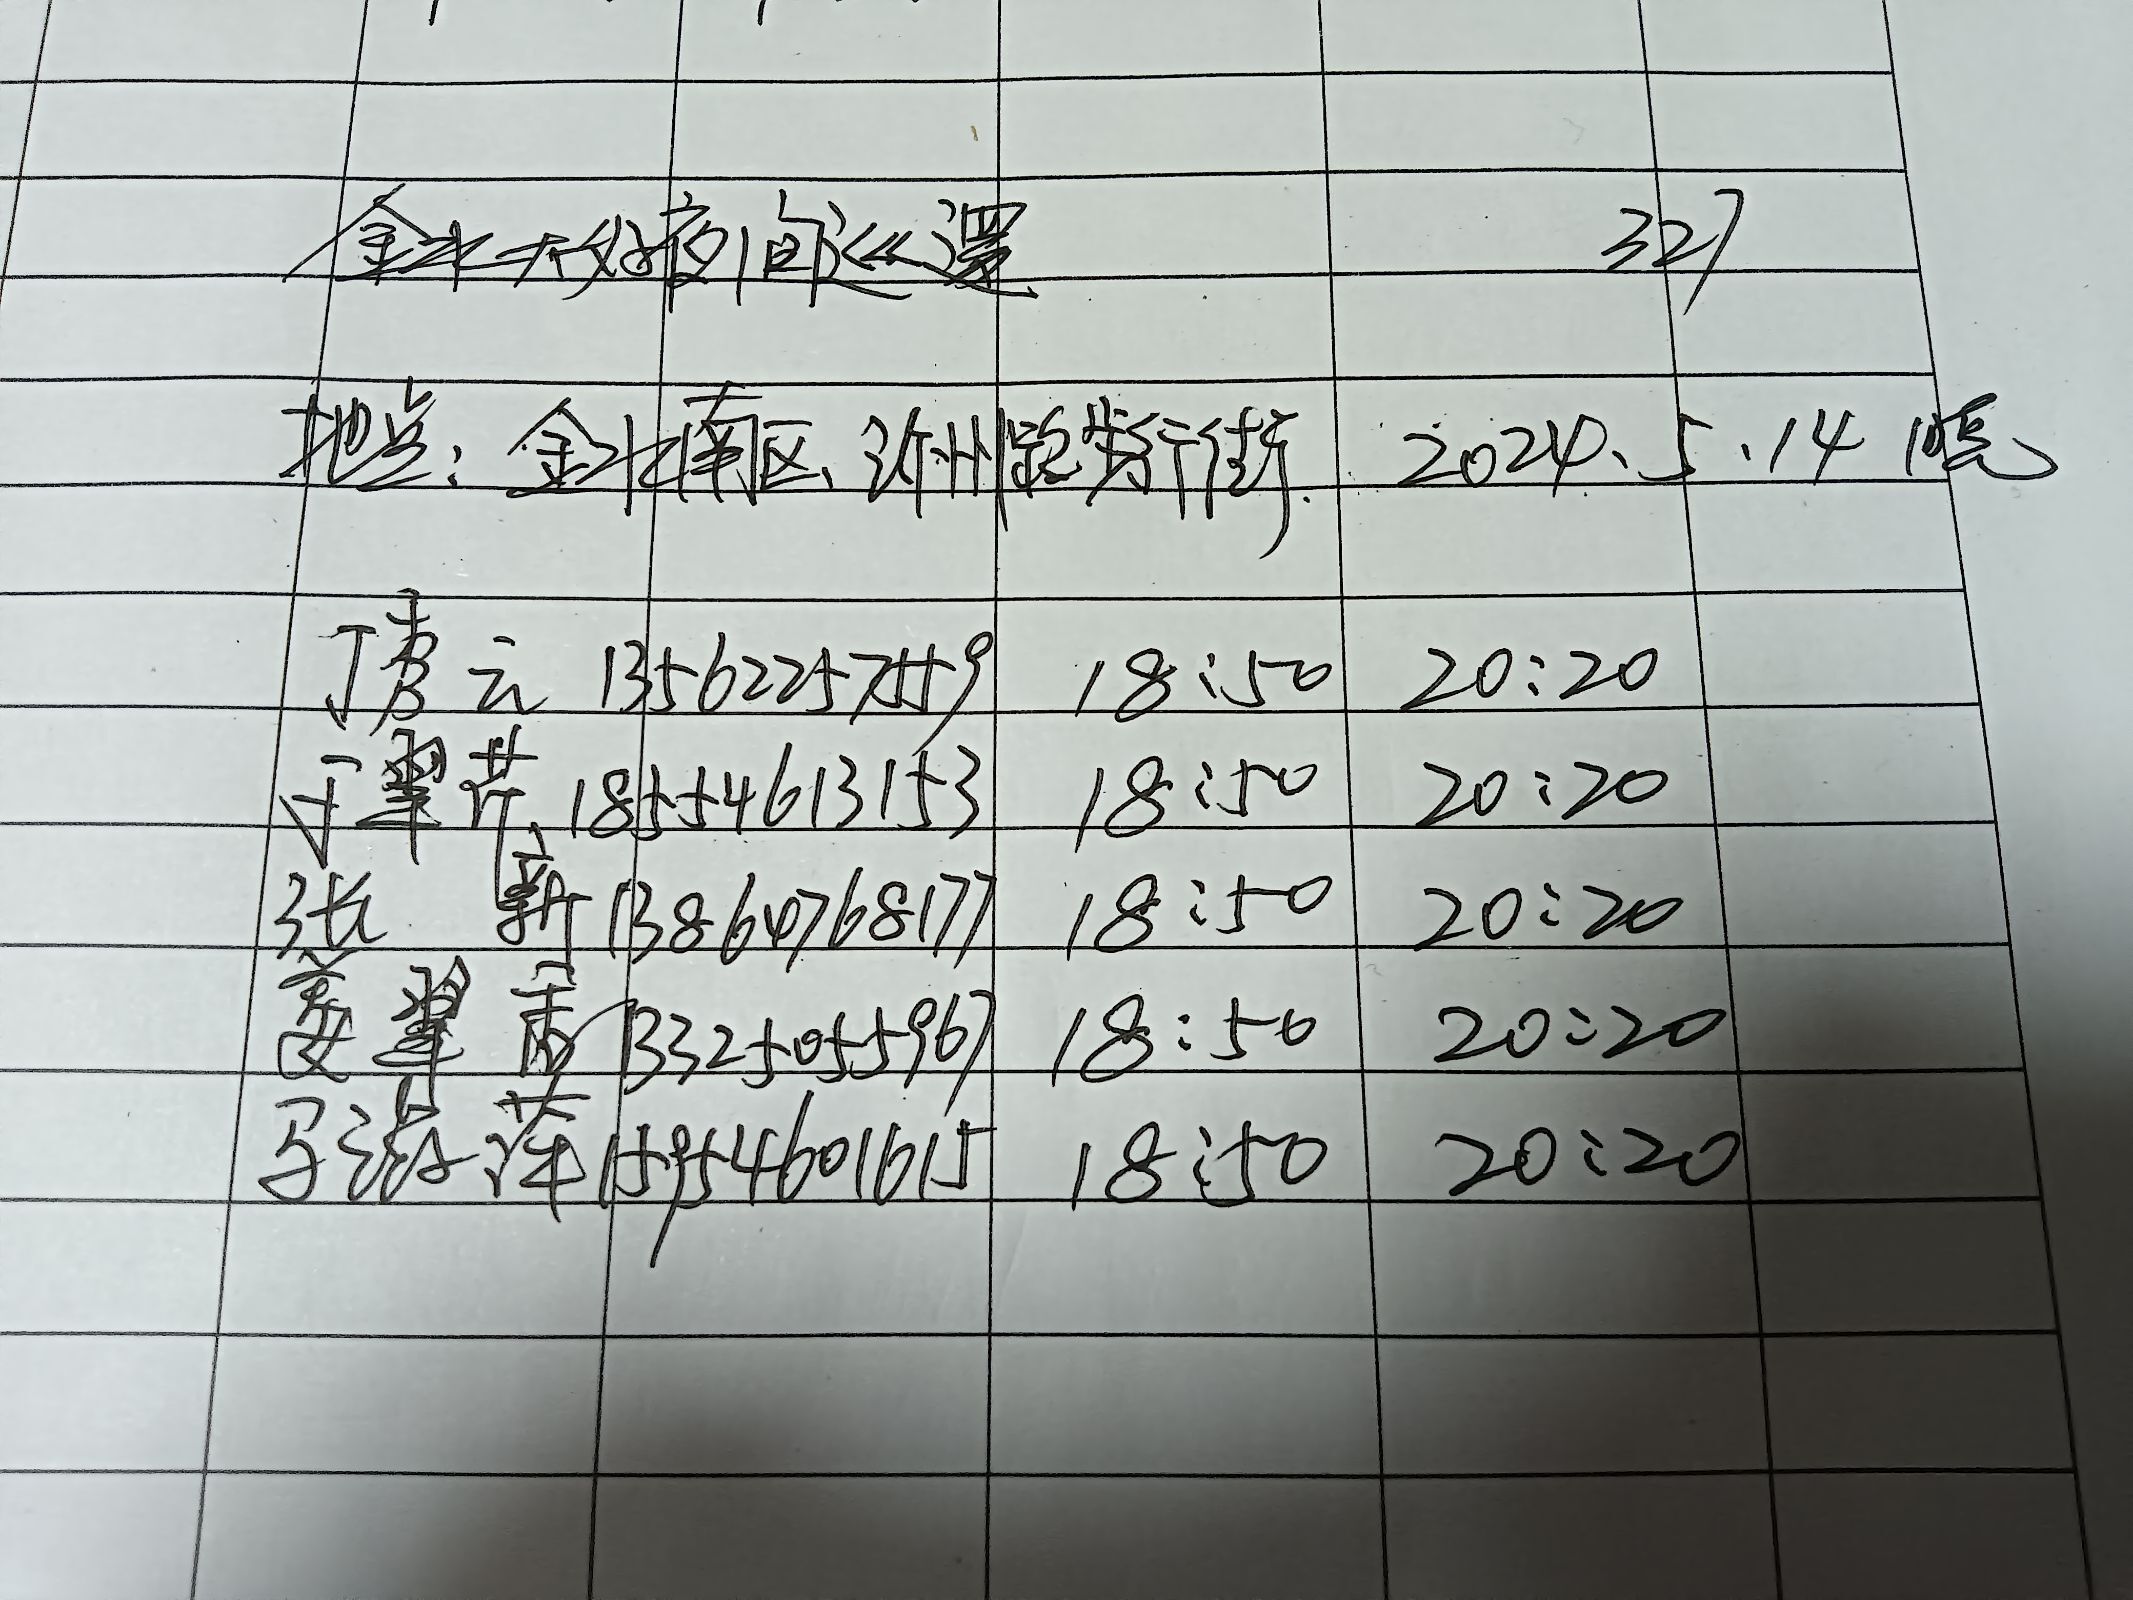 金水大妈夜间巡逻 327
地点：金水南区、沂州路步行街. 2024.5.14 晚
丁秀云 13562257559 18:50 20:20
于翠芹 18554613153 18:50 20:20
张新 13864768177 18:50 20:20
姜翠香 13325055967 18:50 20:20
马萍 15954601615 18:50 20:20